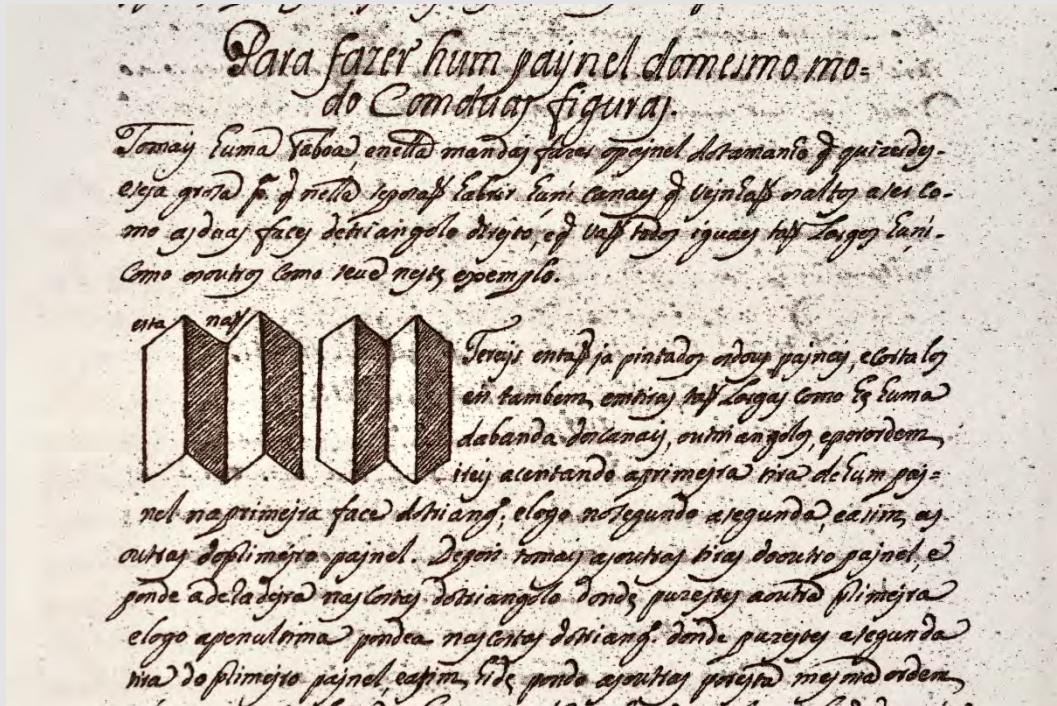 Para fazer hum paynel domesmo mo=
do Comduas figuras.
Tomay huma Taboa, enella manday fazer opaynel dotamanho q̃ quizerdes-
eseja grosa p.ª q̃ nella seposaõ labrar huns canaes q̃ venhaõ oaltos aser co-
mo asduas faces detriangolo direito, eq̃ vaõ todos iguaes taõ largos huns-
como outros como sevé neste exemplo.
esta naõ
Tereis entaõ ja pintados odous paineis, ecortalos
en tambem, emtiras taõ Largas como he huma
dabanda docanais, outriangolos, eporordem
ireis acentando aprimejra tira dehum paj=
nel naprimejra face dotriang.º, elogo nosegundo asegunda, easim, as
outras doplimejro pajnel. Depois tomai asoutras tiras dooutro pajnel, e
ponde adeladejra nascostas dotriangolo donde puzestes aoutra plimejra
elogo apenultima pondea nascostas dotriang.º donde puzestes asegunda
tira do plimejro pajnel, easim, hide pondo asoutras poresta mesmaordem